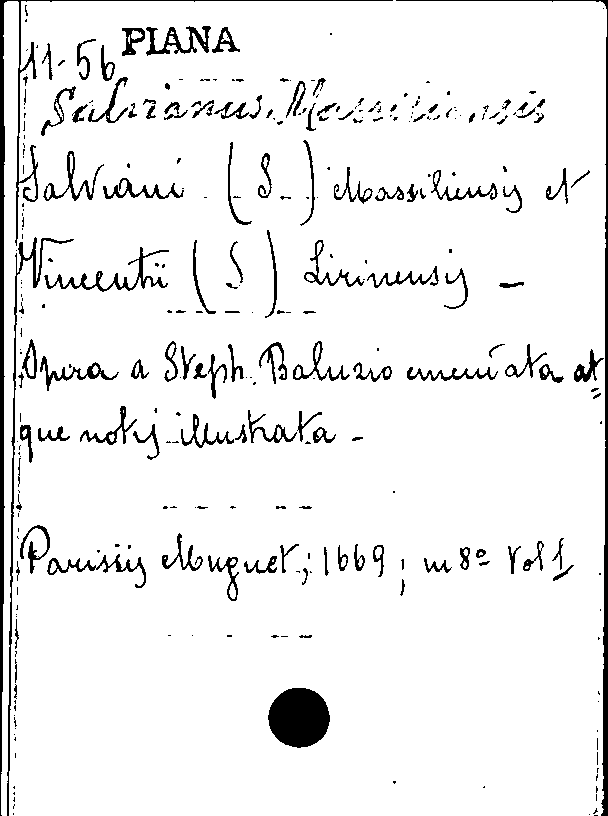 PIANA
11-56
Salvianus Massiliensis
Salviani (S.) Massiliensis et
Vincentii (S) Lirinensis -
Opera a Steph. Baluzio emendata at=
que notis illustrata -
Parisiis Muguet; 1669; in 8º Vol 1